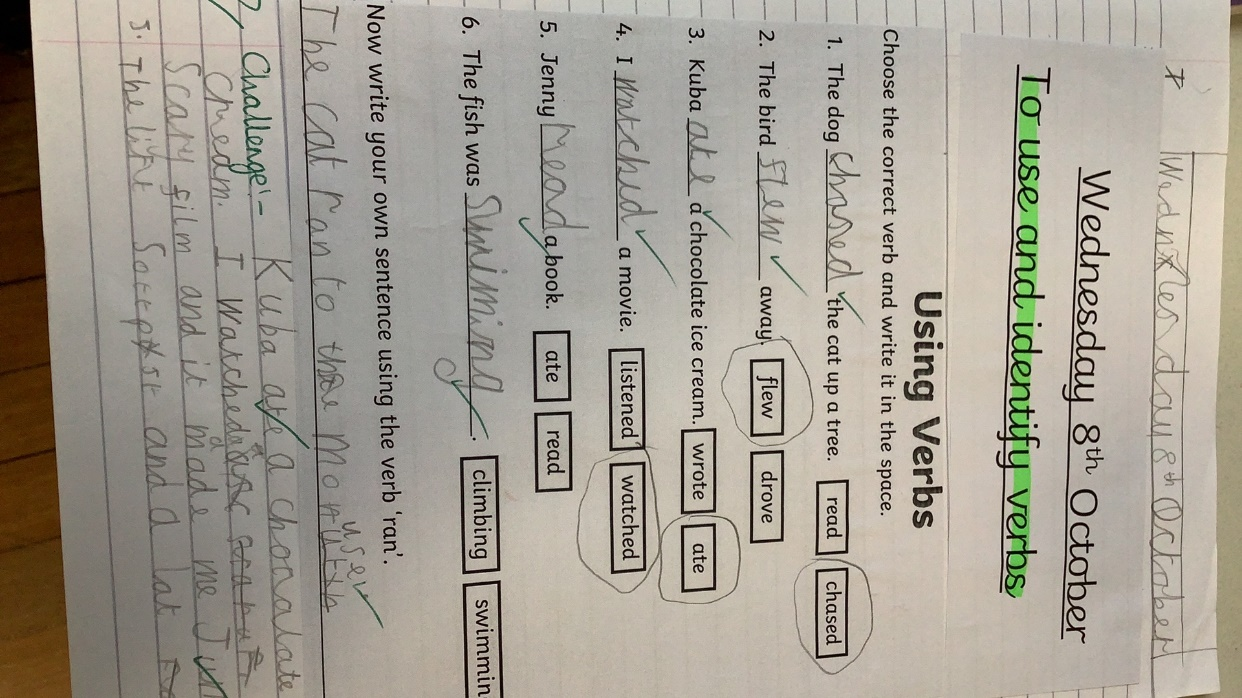 Wednesday 8th October
Wednesday 8th October
To use and identify verbs
Using Verbs
Choose the correct verb and write it in the space.
1. The dog chased the cat up a tree. read chased
2. The bird flew away. flew drove
3. Kuba ate a chocolate ice cream. wrote ate
4. I watched a movie. listened watched
5. Jenny read a book. ate read
6. The fish was Swiming. climbing swimmin
Now write your own sentence using the verb 'ran'.
user
The cat ran to the
Challenge:- Kuba ate a chonalate
I watched a
Scary film and it made me Ju
5. The and a